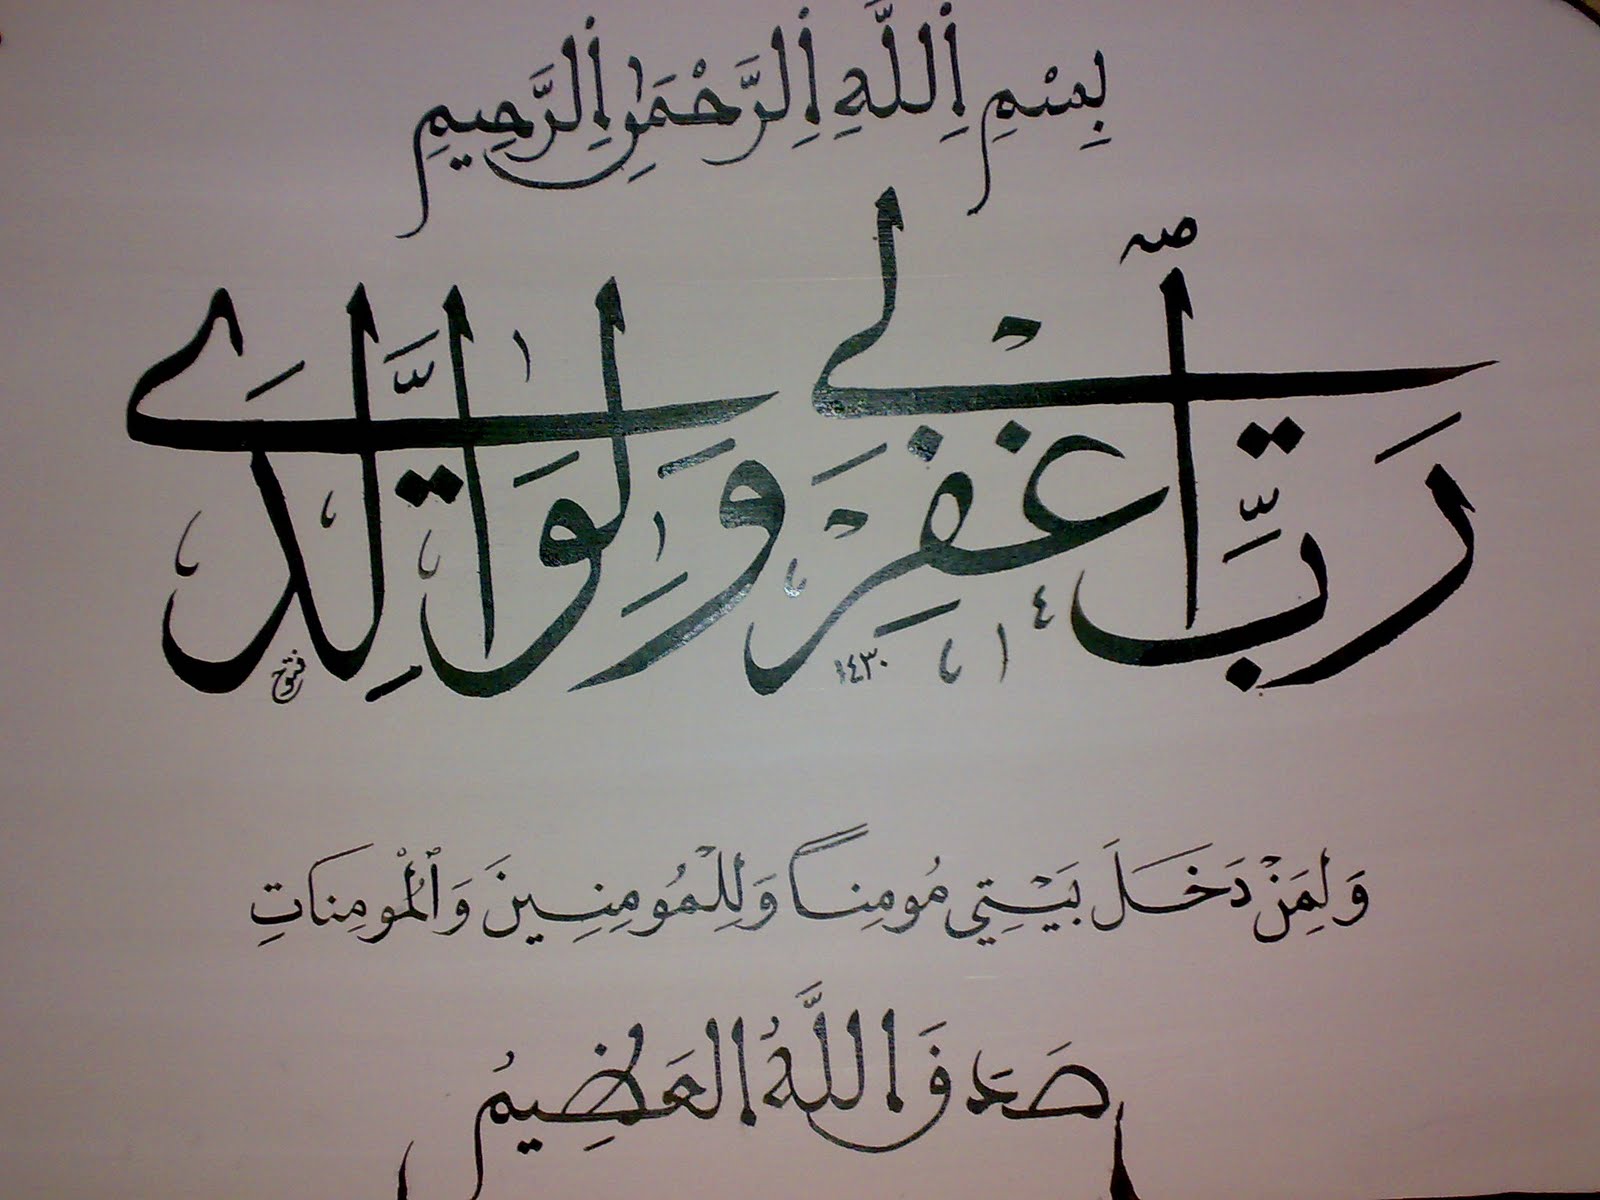 بِسْمِ اِللَّهِ اِلرَّحْمَٰنِ اِلرَّحِيمِ
رَبِّ اَغْفِرْ لِي وَلِوَٰلِدَيَّ
فتوح
١٤٣٠
وَلِمَنْ دَخَلَ بَيْتِي مُومِناً وَلِلْمُومِنِينَ وَٱلْمُومِنَاتِ
صَدَقَ اللَّهُ العَظِيمُ